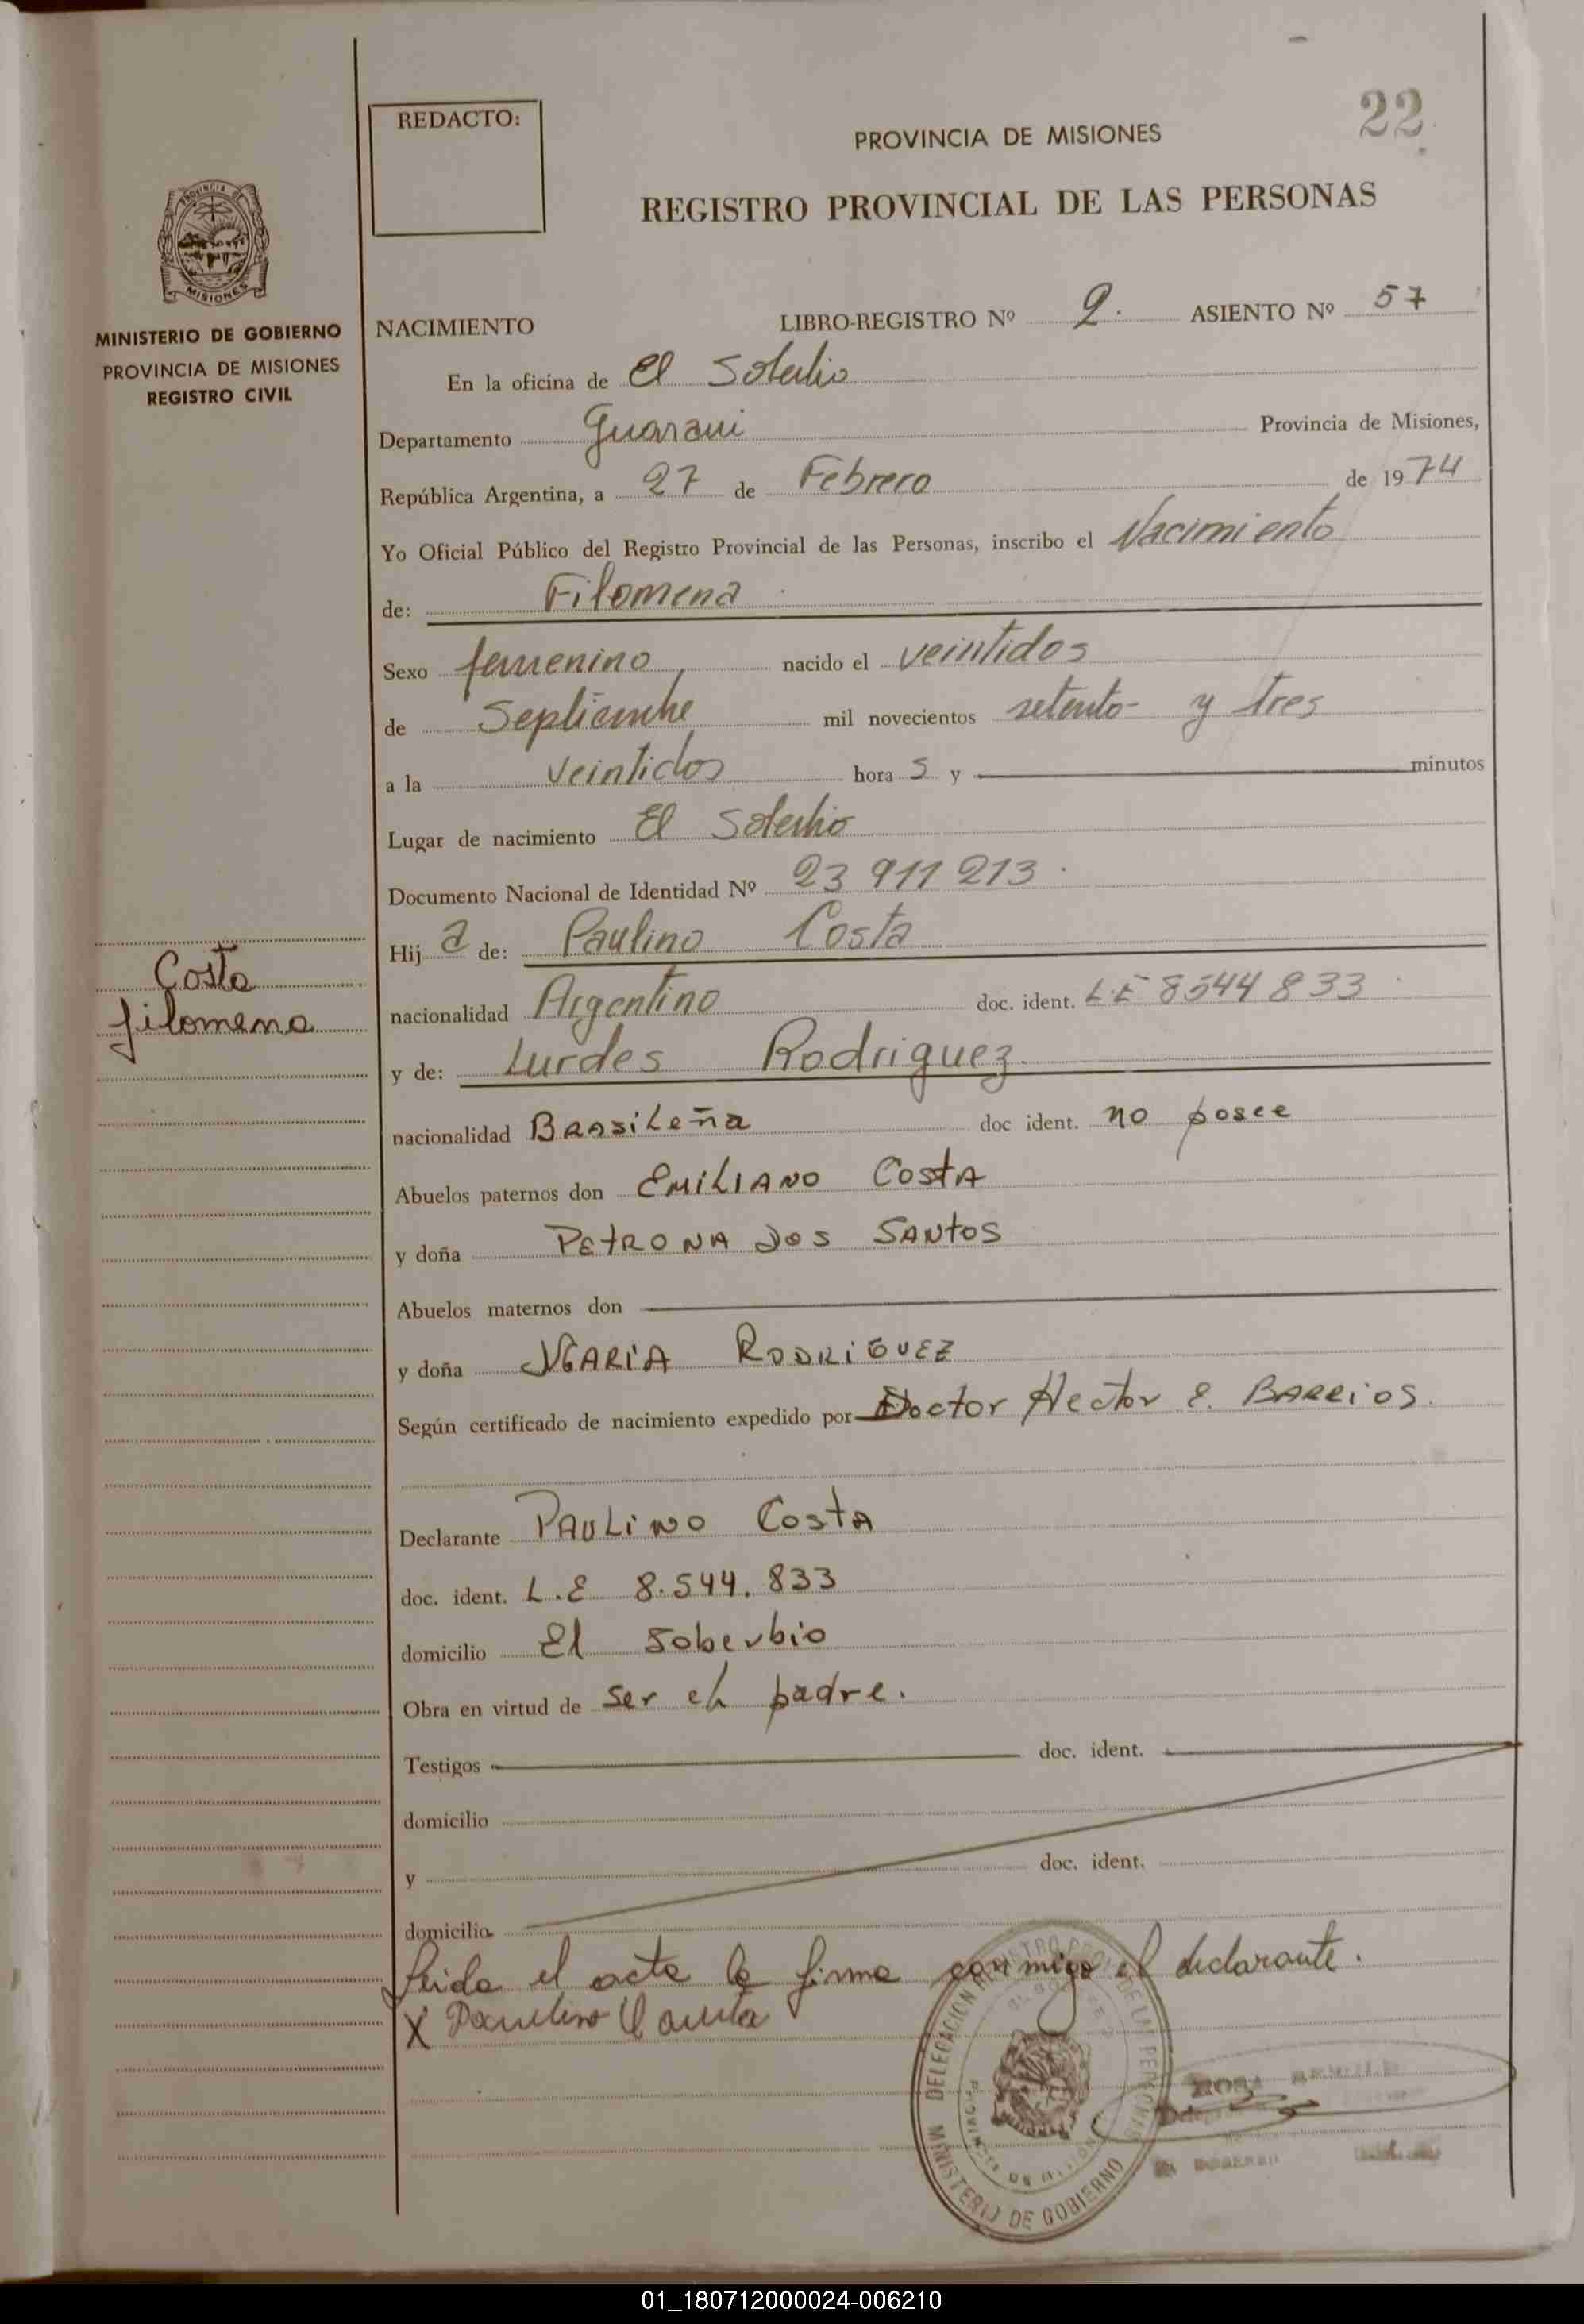 22
REDACTO:
PROVINCIA DE MISIONES
REGISTRO PROVINCIAL DE LAS PERSONAS
PROVINCIA DE
MISIONES
MINISTERIO DE GOBIERNO
PROVINCIA DE MISIONES
REGISTRO CIVIL
NACIMIENTO LIBRO-REGISTRO Nº 2. ASIENTO Nº 57
En la oficina de El Soberbio
Departamento Guarani Provincia de Misiones,
República Argentina, a 27 de Febrero de 1974
Yo Oficial Público del Registro Provincial de las Personas, inscribo el Nacimiento
de: Filomena
Sexo femenino nacido el veintidos
de Septiembre mil novecientos setenta y tres
a la veintidos hora s y minutos
Lugar de nacimiento El Soberbio
Documento Nacional de Identidad Nº 23 911 213
Hij a de: Paulino Costa
Costa
filomena
nacionalidad Argentino doc. ident. L.E 8544833
y de: Lurdes Rodriguez
nacionalidad BRASiLeña doc ident. no posee
Abuelos paternos don EMiLIANO COStA
y doña PEtRONA DOS SANtOS
Abuelos maternos don
y doña MARIA RODRiGUEZ
Según certificado de nacimiento expedido por Doctor Hector E. BARRiOS.
Declarante PAULiNO COStA
doc. ident. L.E 8.544.833
domicilio El Soberbio
Obra en virtud de ser el padre.
Testigos doc. ident.
domicilio
y doc. ident.
domicilio
Leida el acta la firma conmigo el declarante.
X Paulino
DELEGACION REGISTRO PROV. DE LAS PERSONAS
PROVINCIA DE MISIONES
MINISTERIO DE GOBIERNO
01_180712000024-006210